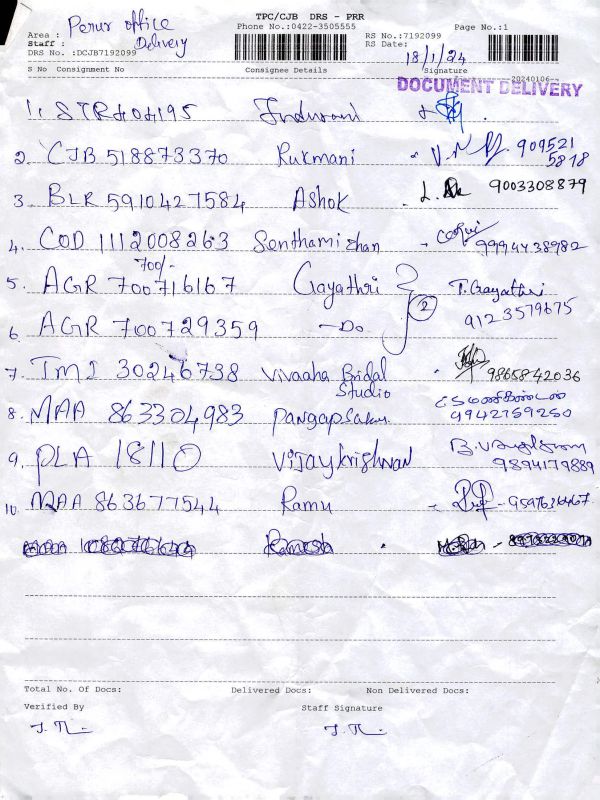 TPC/CJB DRS - PRR
Area : Perur office Phone No.:0422-3505555 RS No.:7192099 Page No.:1
Staff : Delivery RS Date:
DRS No. :DCJB7192099 18/1/24
S No Consignment No Consignee Details Signature 20240106
DOCUMENT DELIVERY
1. STR404195
2. CJB 518873370 Rukmani 909521
5818
3 BLR 5910427584 Ashok 9003308879
4. COD 1112008263 Senthamizhan 9994438982
700/-
5. AGR 700716167 Gayathri T. Gayathri
2 9123579675
6 AGR 700729359 -Do
7. TMI 30246738 Vivaaha Bridal 9865842036
Studio
8. MAA 863304983 மணிகண்டன்
9942759250
9. PLA 18110 Vijaykrishnan
9894179889
10. MAA 863677544 Ramu
Ramesh
Total No. Of Docs: Delivered Docs: Non Delivered Docs:
Verified By Staff Signature